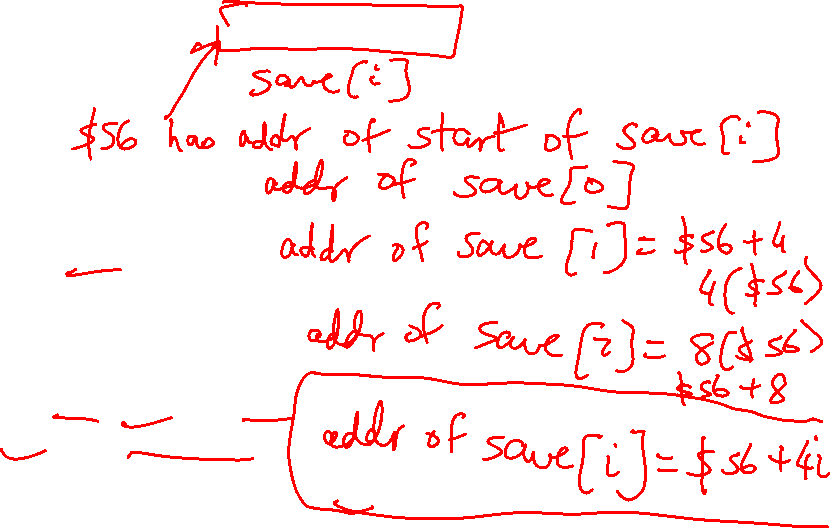 save[i]
$s6 has addr of start of save[i]
addr of save[0]
addr of save[1] = $s6 + 4
4($s6)
addr of save[2] = 8($s6)
$s6 + 8
addr of save[i] = $s6 + 4i